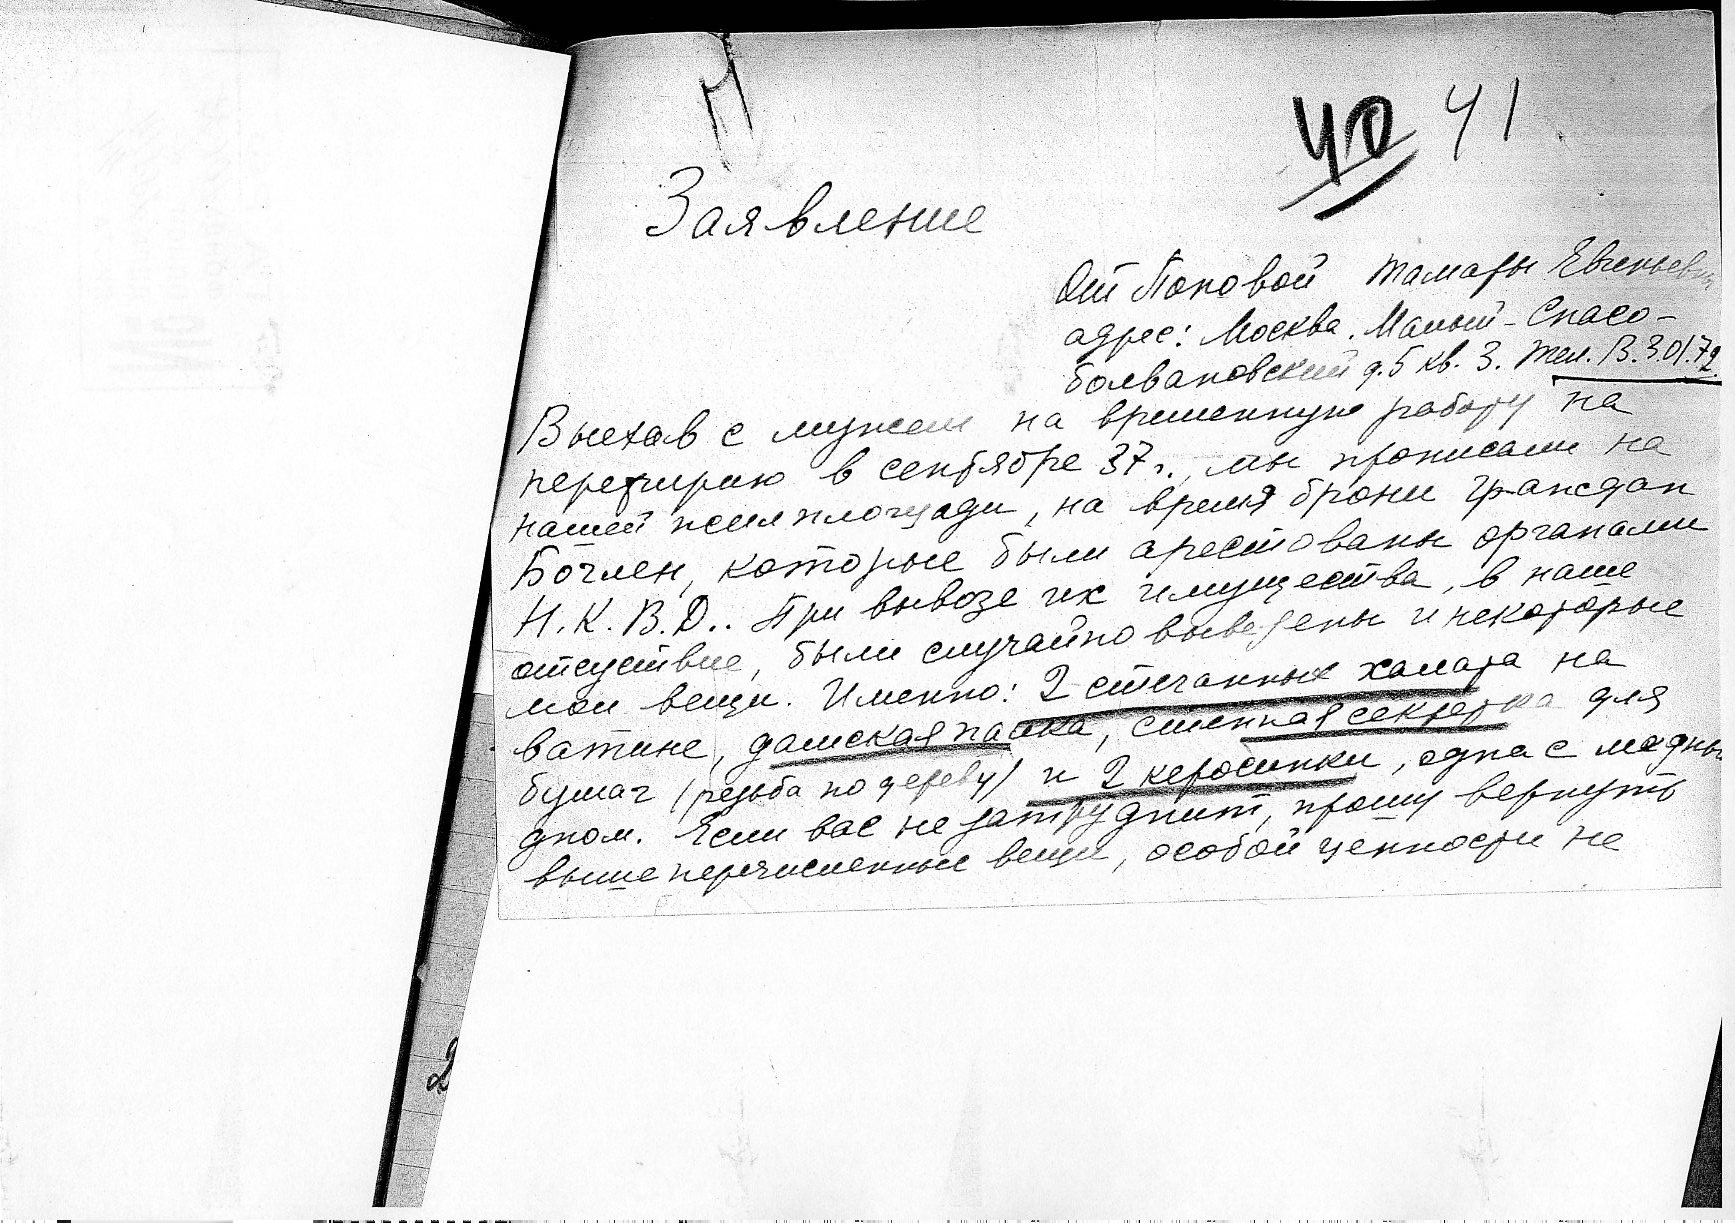 40 41
Заявление
От Поповой Тамары Евгеньевны
адрес: Москва. Малый-Спасо-
болвановский д.5 кв. 3. Тел. В.3.01.72.
Выехав с мужем на временную работу на
переферию в сентябре 37 г., мы прописали на
нашей жилплощади, на время брони граждан
которые были арестованы органами
Н.К.В.Д.. При вывозе их имущества, в наше
отсуствие, были случайно вывезены и некоторые
мои вещи. Именно: 2 стеганных халата на
ватине, дамская папка, стенная секретка для
бумаг (резьба по дереву) и 2 керосинки, одна с медным
дном. Если вас не затруднит, прошу вернуть
вышеперечисленные вещи, особой ценности не
2